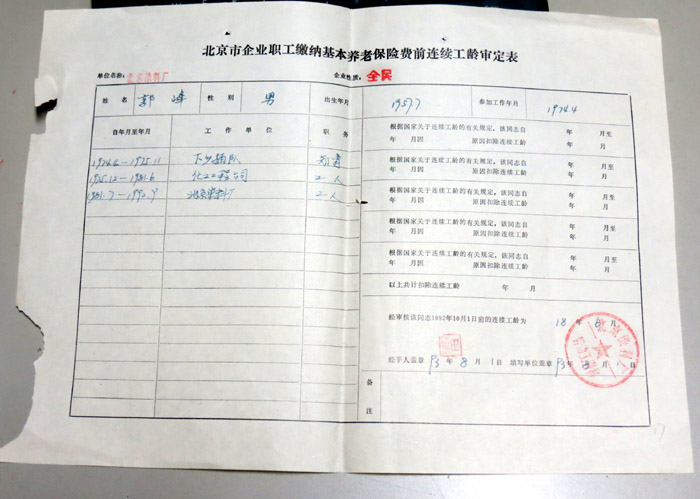 北京市企业职工缴纳基本养老保险费前连续工龄审定表
单位名称：北京染料厂 企业性质：全民
姓名 郭 性别 男 出生年月 1957.7 参加工作年月 1974.4
自年月至年月 工作单位 职务
1974.4—1975.11 下乡插队 知青
1975.12—1981.6 化工工程公司 工人
1981.7—1992.9 北京染料厂 工人
根据国家关于连续工龄的有关规定，该同志自 年 月至
年 月因 原因扣除连续工龄 年 月
根据国家关于连续工龄的有关规定，该同志自 年 月至
年 月因 原因扣除连续工龄 年 月
根据国家关于连续工龄的有关规定，该同志自 年 月至
年 月因 原因扣除连续工龄 年 月
根据国家关于连续工龄的有关规定，该同志自 年 月至
年 月因 原因扣除连续工龄 年 月
根据国家关于连续工龄的有关规定，该同志自 年 月至
年 月因 原因扣除连续工龄 年 月
以上共计扣除连续工龄 年 月
经审核该同志1992年10月1日前的连续工龄为 18 年 6 月
经手人盖章 93 年 8 月 1 日 填写单位盖章 93 年 8 月 1 日
备注